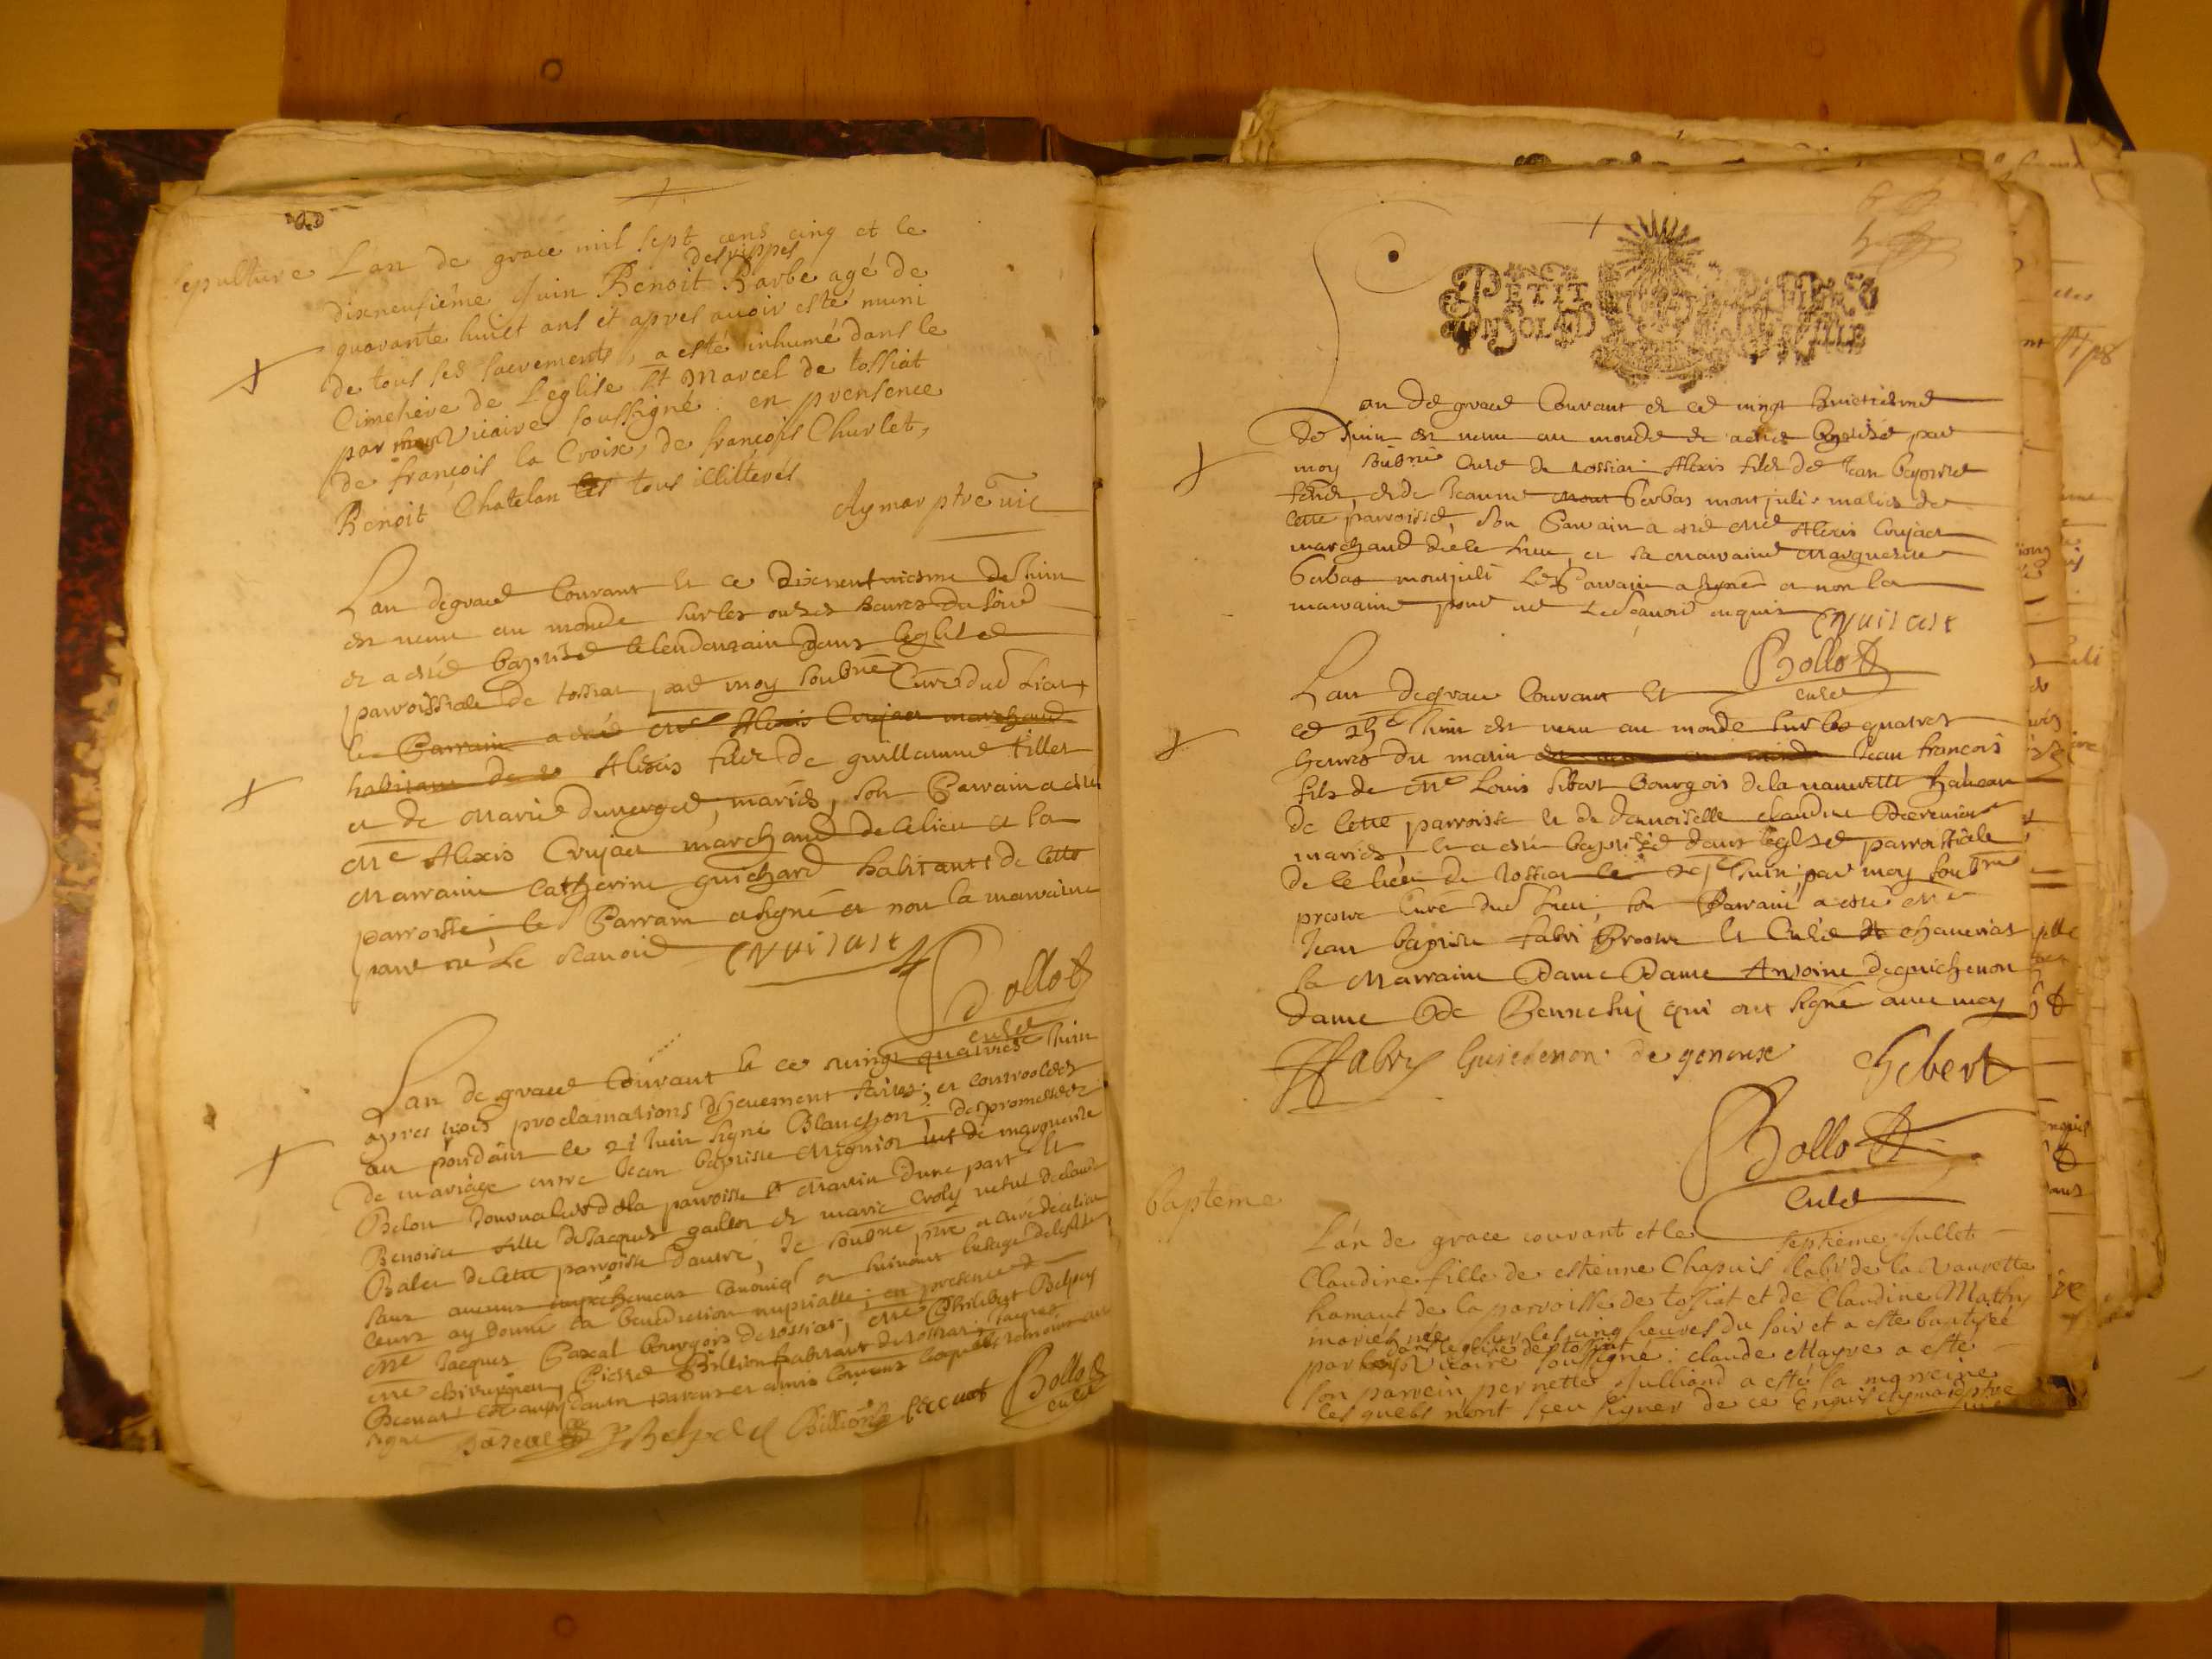 sepulture L'an de grace mil sept cens cinq et le
desrippes
dixneufiéme Juin Benoit Barbe agé de
quarante huict ans et apres avoir esté muni
de tous ses sacrements, a esté inhumé dans le
Cimetiere de L'eglise St Marcel de tossiat
par moy Vicaire soussigné : en presence
de françois la Croix, de françois Churlet,
Benoit Chatelan tous illitterés
Aymar ptre vic
Lan de grace Courant et ce dixneufviesme de Juin
est venu au monde sur les onses heures du soir
et a esté baptisé le lendemain dans leglise
parroissiale de tossiat par moy soubné Curé dud Lieu
le Parrain a esté Me Alexis Crujact marchand
habitant de Alexis fils de guillaume tillet
et de Marie duverget, mariés, son Parrain a esté
Me Alexis Crujact marchand de ce lieu et la
Marraine Catherine guichard habitante de cette
parroisse, le Parrain a signé et non la marraine
pour ne Le scavoir
Bollot
curé
Lan de grace Courant et ce vingt quatriesme Juin
apres trois proclamations deheuement faites, et controolées
au pondain le 21 Juin signé Blanchon, des promesses
de mariage entre Jean baptiste Mignot de marguerite
Belou Journalier de la parroisse St Martin dune part et
Benoiste fille de Jacques gallet et marie Croly vefve de claude
Balet de cette parroisse dautre, Je soubné ptre et curé
sans aucuns empechement canoniq et suivant lusage de leglise
leurs ay donné la benediction nuptialle; en presence de
Me Jacques Pascal bourgois de tossiat, Me Philibert Belpey
me chirurgien, Pierre Billion habitant de tossiat, Jacques
signé
Billion Bollot
curé
PETIT
an de grace Courant et ce vingt huictiesme
de Juin est venu au monde et a esté baptisé par
moy soubné Curé de tossiat Alexis fils de Jean baptiste
et de Jeanne Gerbas montjuli mariés de
cette parroisse, Son Parrain a esté Me Alexis Crujact
marchand de ce Lieu, et sa marraine Marguerite
Gerbas montjuli Le Parrain a signé et non la
marraine pour ne Le scavoir enquis
Bollot
curé
Lan de grace Courant et
ce 25e Juin est venu au monde sur les quatres
heures du matin Jean francois
fils de Me Louis hebert bourgois de la vauvette hameau
de cette parroisse et de damoiselle claudine
mariés, et a esté baptisé dans leglise parroissiale
de ce lieu de tossiat le 29e Juin par moy soubné
prestre Curé dud Lieu, son Parrain a esté Me
Jean baptiste fabri Prestre et Curé de chaveriat
la Marraine Dame Dame Antoine de guichenon
Dame De qui ont signé avec moy
Fabry Guichenon de genoux Hebert
Bollot
Curé
bapteme
L'an de grace courant et le septieme Jullet
Claudine fille de estienne Chapuis labr de la Vauvette
hamaut de la parroisse de tossiat et de Claudine Mathy
mariés née sur les cinq heures du soir et a esté baptisée
dans l'eglise de tossiat
par moy Vicaire soussigné : claude Mayre a esté
son parrein pernette Julliand a esté la marreine
les quels n'ont sceu signer de ce Enquis Aymar ptre